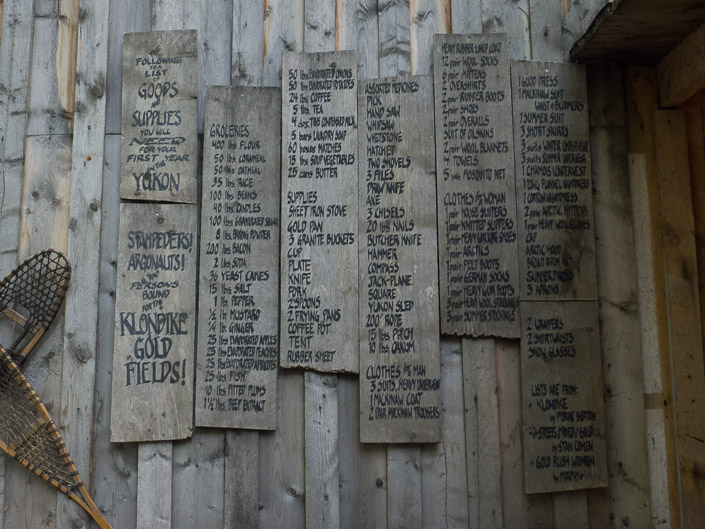 THE
FOLLOWING
IS A
LIST
OF
GOODS
AND
SUPPLIES
YOU WILL
NEED
FOR YOUR
FIRST YEAR
IN THE
YUKON
STAMPEDERS!
ARGONAUTS!
AND
PERSONS
BOUND
FOR THE
KLONDIKE
GOLD
FIELDS!
GROCERIES
400 lbs FLOUR
50 lbs CORNMEAL
50 lbs OATMEAL
35 lbs RICE
100 lbs BEANS
40 lbs CANDLES
100 lbs GRANULATED SUGAR
8 lbs BAKING POWDER
200 lbs BACON
2 lbs SODA
36 YEAST CAKES
15 lbs SALT
1 lb PEPPER
1/2 lb MUSTARD
1/4 lb GINGER
25 lbs EVAPORATED APPLES
25 lbs EVAPORATED PEACHES
25 lbs EVAPORATED APRICOTS
25 lbs FISH
10 lbs PITTED PLUMS
1 1/2 lbs BEEF EXTRACT
50 lbs EVAPORATED ONIONS
50 lbs EVAPORATED POTATOES
24 lbs COFFEE
5 lbs TEA
4 doz. TINS CONDENSED MILK
5 bars LAUNDRY SOAP
60 boxes MATCHES
15 lbs SOUP VEGETABLES
25 cans BUTTER
SUPPLIES
SHEET IRON STOVE
GOLD PAN
3 GRANITE BUCKETS
CUP
PLATE
KNIFE
FORK
2 SPOONS
2 FRYING PANS
COFFEE POT
TENT
RUBBER SHEET
ASSORTED MEDICINES
PICK
HAND SAW
WHIPSAW
WHETSTONE
HATCHET
TWO SHOVELS
3 FILES
DRAW KNIFE
AXE
3 CHISELS
20 lbs NAILS
BUTCHER KNIFE
HAMMER
COMPASS
JACK-PLANE
SQUARE
YUKON SLED
200' ROPE
15 lbs PITCH
10 lbs OAKUM
CLOTHES for MAN
3 SUITS HEAVY UNDERWEAR
1 MACKINAW COAT
2 PAIR MACKINAW TROUSERS
HEAVY RUBBER LINED COAT
12 pair WOOL SOCKS
6 pair MITTENS
2 OVERSHIRTS
2 pair RUBBER BOOTS
2 pair SHOES
2 pair OVERALLS
SUIT OF OILSKINS
2 pair WOOL BLANKETS
4 TOWELS
5 yds MOSQUITO NET
CLOTHES for WOMAN
1 pair HOUSE SLIPPERS
1 pair KNITTED SLIPPERS
1 pair HEAVY WALKING SHOES
1 pair ARCTICS
1 pair FELT BOOTS
1 pair GERMAN SOCKS
1 pair HEAVY GUM BOOTS
3 pair HEAVY WOOL STOCKINGS
3 pair SUMMER STOCKINGS
1 GOOD DRESS
1 MACKINAW SUIT
WAIST & BLOOMERS
1 SUMMER SUIT
3 SHORT SKIRTS
3 suits WINTER UNDERWEAR
3 suits SUMMER UNDERWEAR
1 CHAMOIS UNDERVEST
1 LONG FLANNEL NIGHTDRESS
1 COTTON NIGHTDRESS
2 pair ARCTIC MITTENS
1 pair HEAVY WOOL GLOVES
CAP
ARCTIC HOOD
BROAD BRIM HAT
SUMMER DRESS
3 APRONS
2 WRAPPERS
2 SHIRTWAISTS
SNOW GLASSES
LISTS ARE FROM:
KLONDIKE
by PIERRE BERTON
by STAN COHEN
- GOLD RUSH WOMEN
by MURPHY